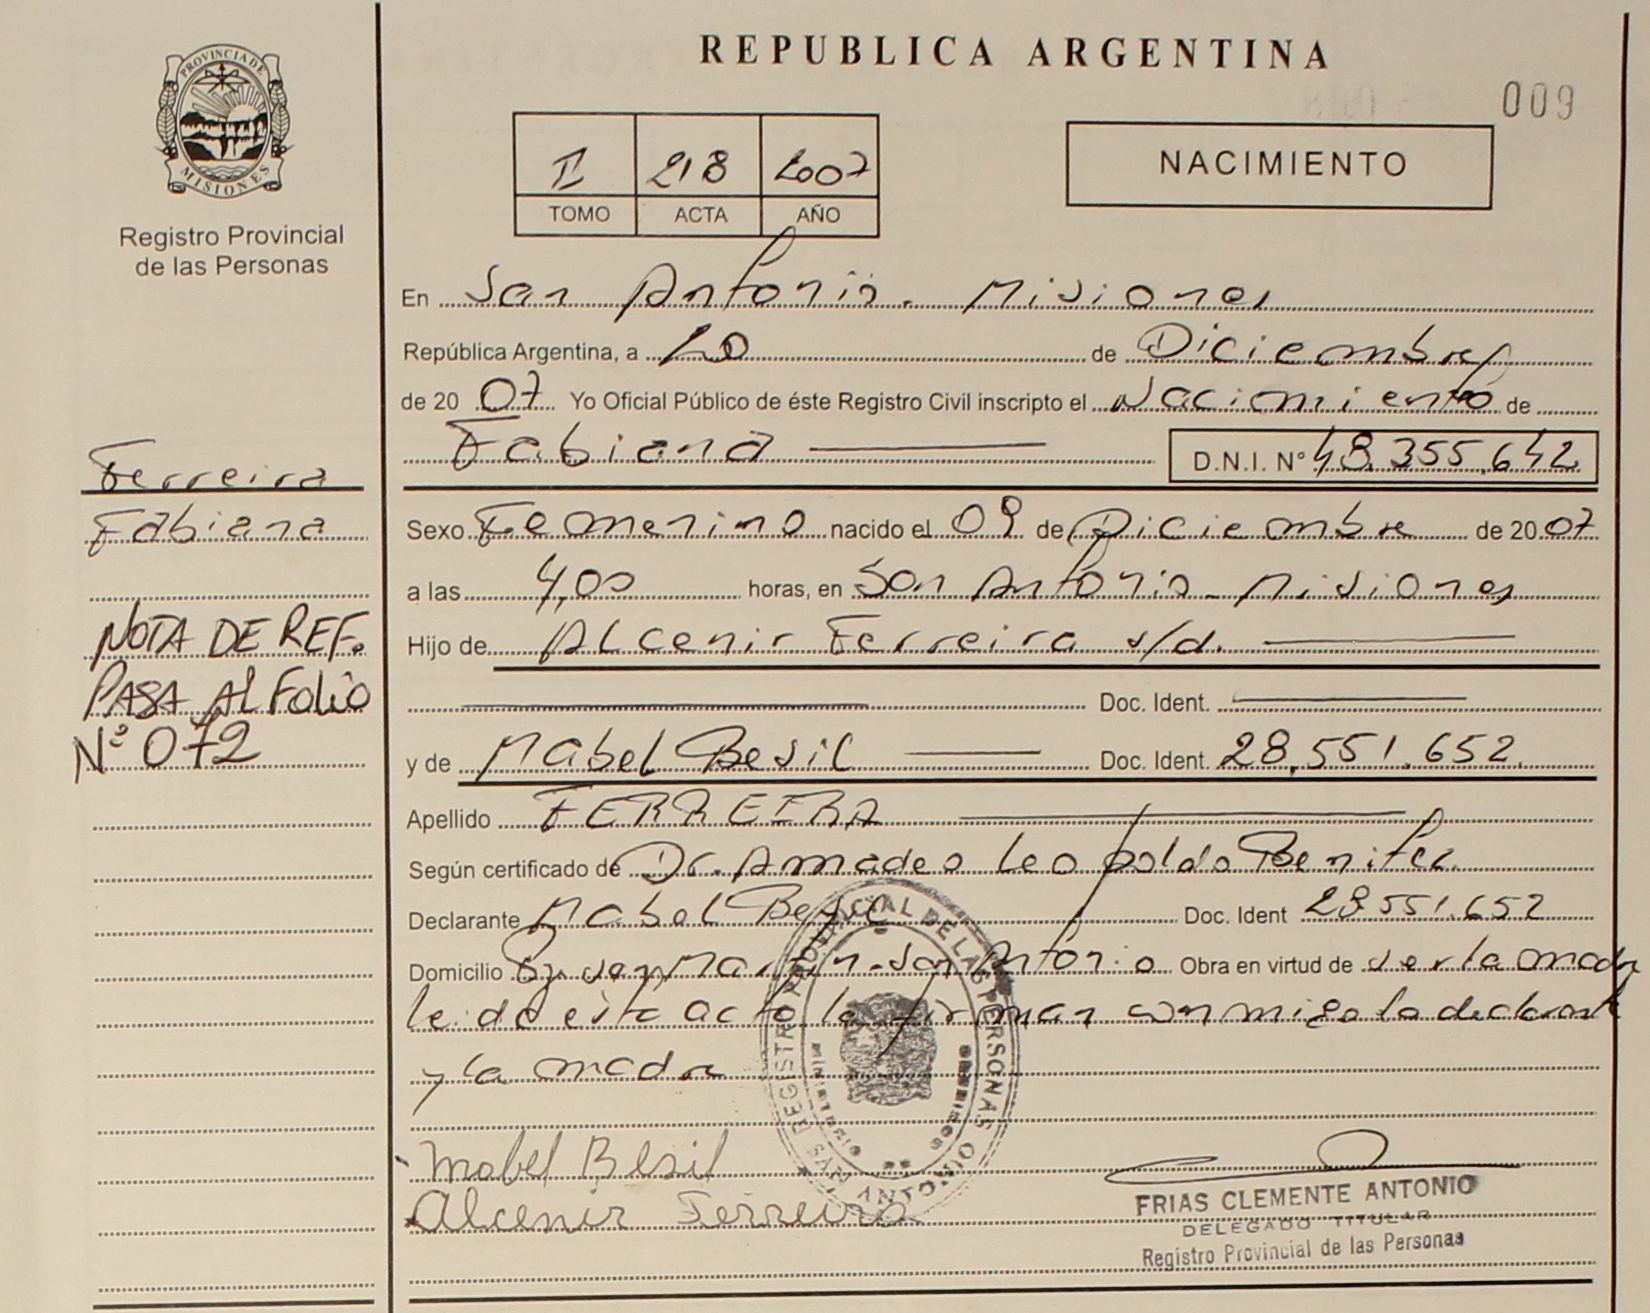 PROVINCIA DE
MISIONES
Registro Provincial
de las Personas
REPUBLICA ARGENTINA
009
II 218 2007
TOMO ACTA AÑO
NACIMIENTO
En San Antonio. Misiones
República Argentina, a 20 de Diciembre
de 20 07 Yo Oficial Público de éste Registro Civil inscripto el Nacimiento de
Fabiana D.N.I. Nº 48.355.642
Ferreira
Fabiana
NOTA DE REF.
PASA AL FOLIO
Nº 072
Sexo Femenino nacido el 09 de Diciembre de 20 07
a las 4,00 horas, en San Antonio - Misiones
Hijo de Alcenir Ferreira s/d.
Doc. Ident.
y de Mabel Besil Doc. Ident. 28.551.652
Apellido FERREIRA
Según certificado de Dr. Amadeo Leopoldo Benitez
Declarante Mabel Besil Doc. Ident 28.551.652
Domicilio Martin - San Antonio Obra en virtud de ser la madre
leido este acto la firman conmigo la declarante
y la madre
REGISTRO PROVINCIAL DE LAS PERSONAS
SAN ANTONIO
MINISTERIO
MISIONES
Mabel Besil
Alcenir Ferreira
FRIAS CLEMENTE ANTONIO
DELEGADO TITULAR
Registro Provincial de las Personas